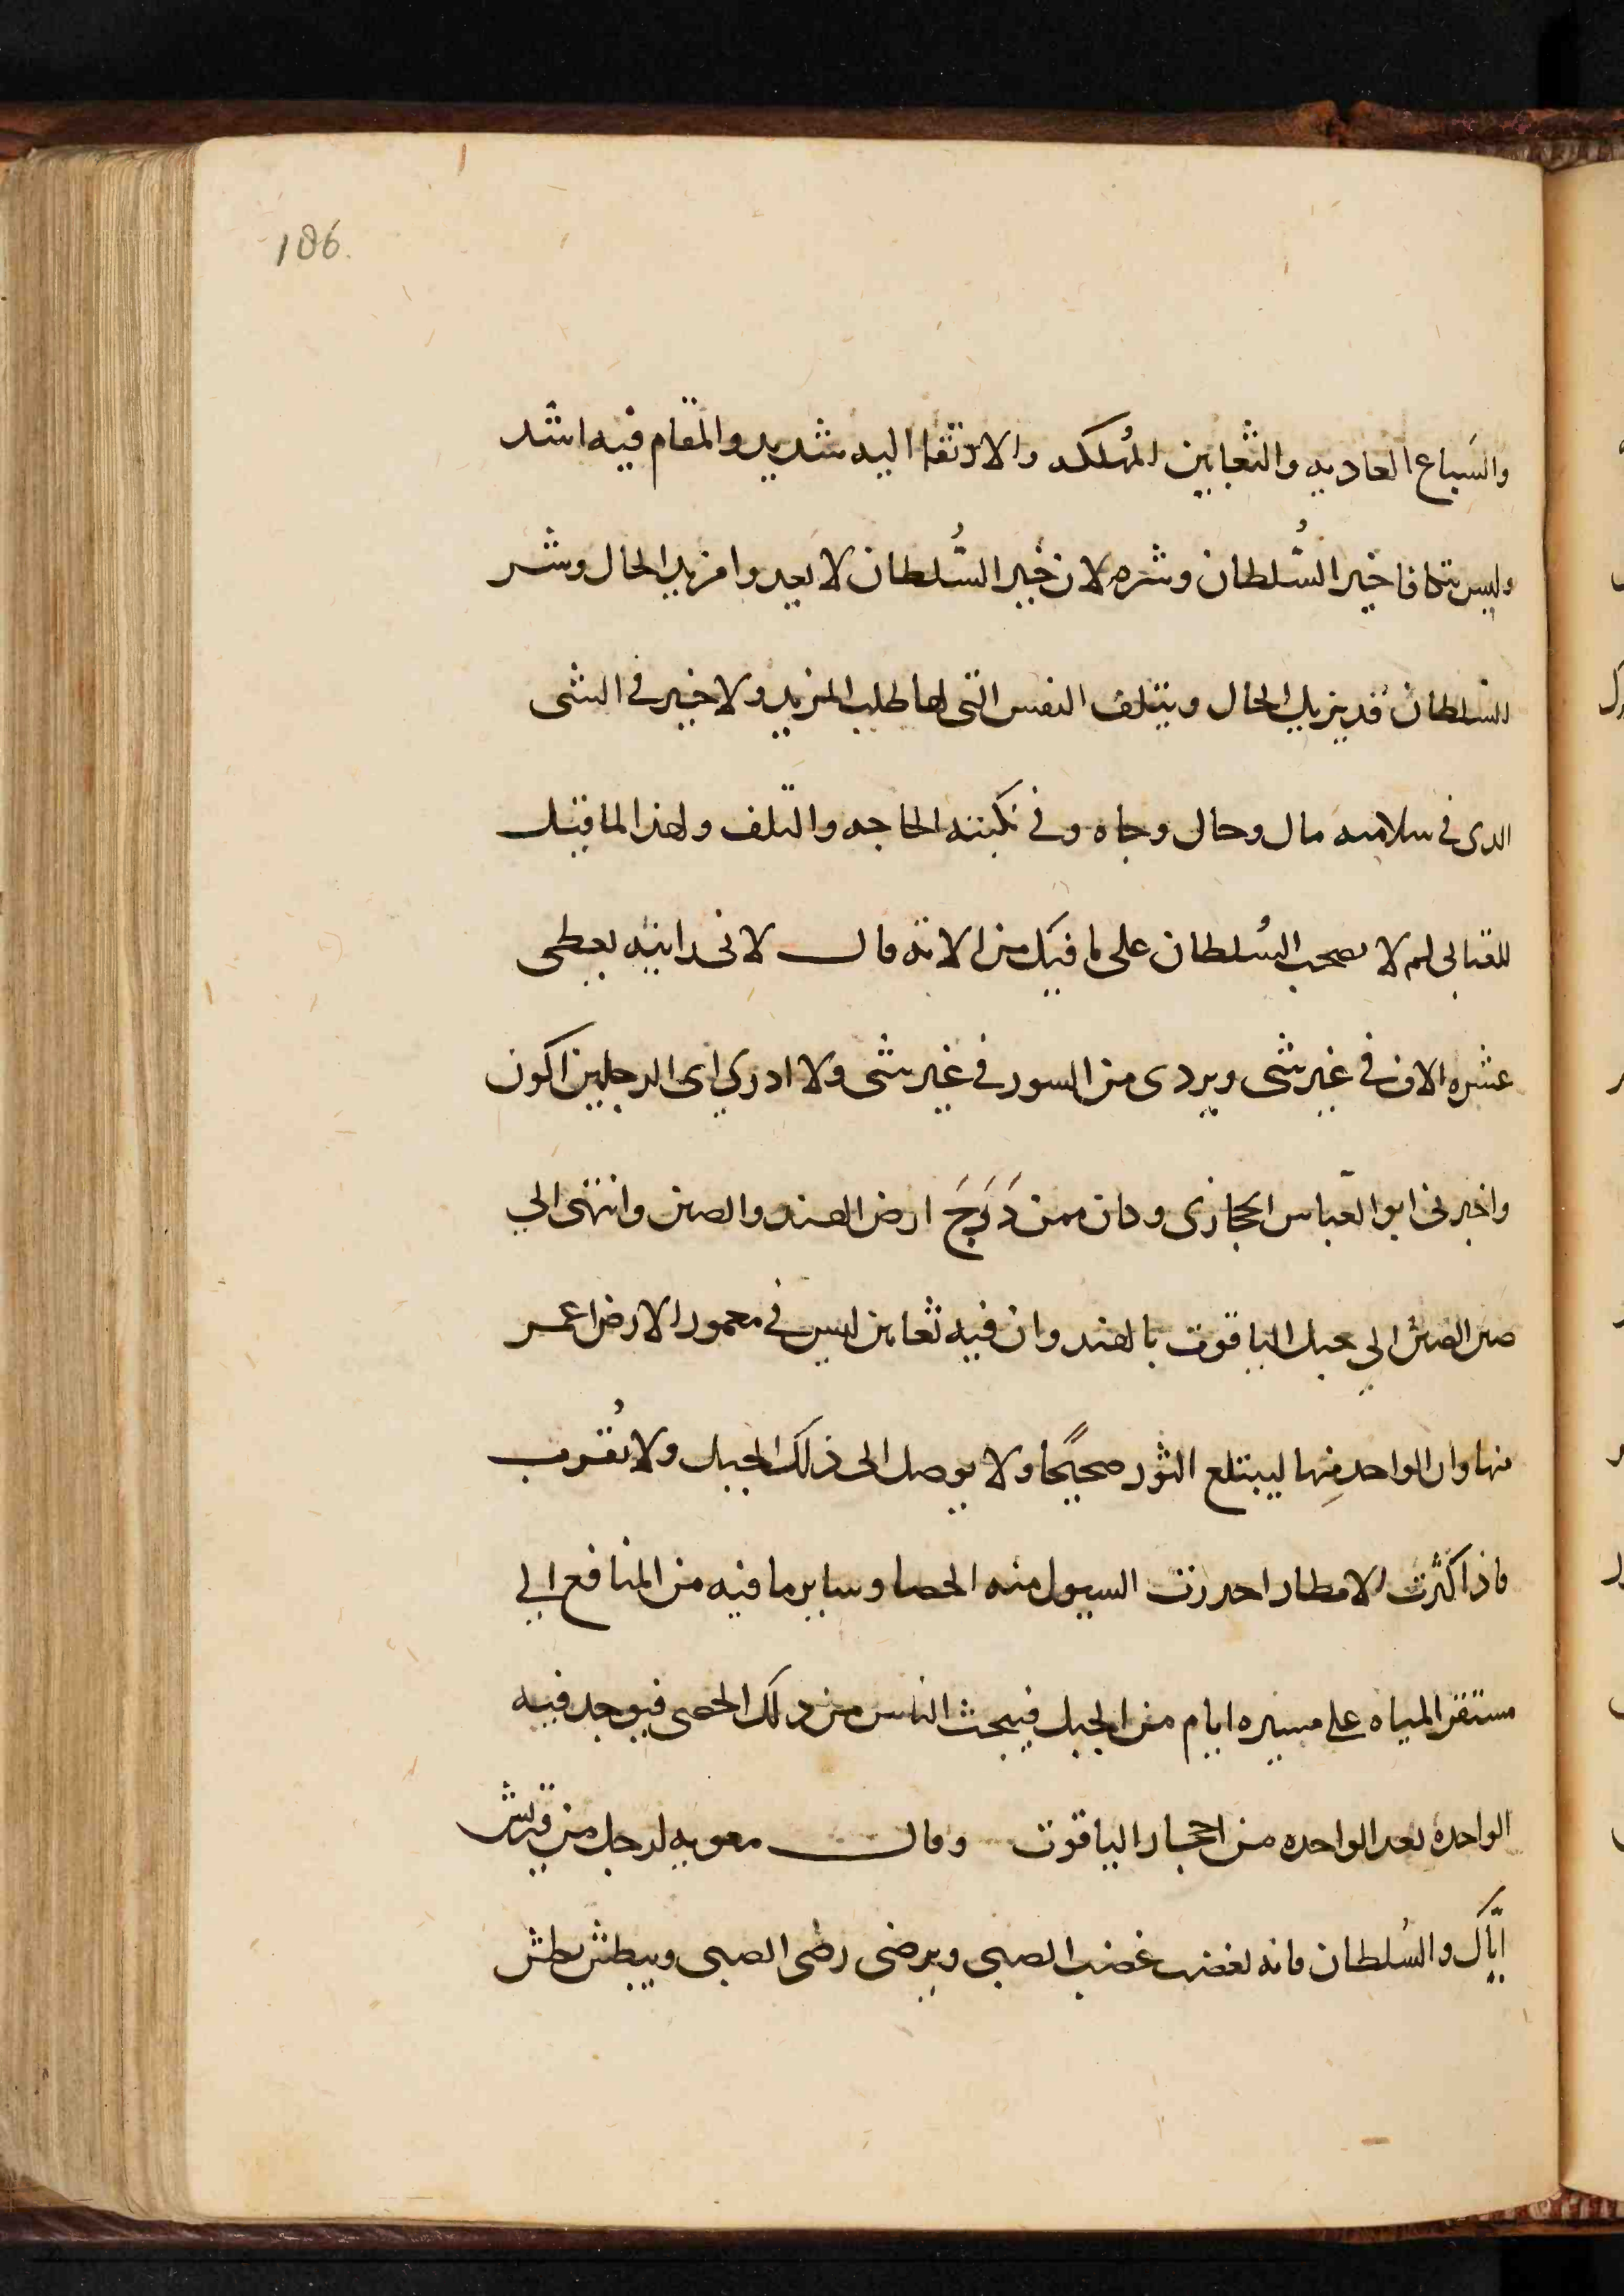 186.
والسَباع العاديه والثعابين المُهلكه والارتقا اليه شديد والمقام فيه اشد
وليس يتكافا خير السُّلطان وشره لان خير السُّلطان لا يعدوا مزيد الحال وشر
السلطان قد يزيل الحال ويتلف النفس التي لها طلب المزيد ولا خير في الشى
الدى في سلامته مال وحال وجاه وفي نكبته الحاجه والتلف ولهذا لما قيل
للعتابى لم لا تصحب السُلطان على ما فيك من الاته قال لانى رايته يعطى
عشره الاف في غير شى ويردى من السور في غير شى ولا ادري اى الرجلين اكون
واخبرنى ابو العباس الحجازى وكان ممن دَرَجَ ارض الهند والصين وانتهى الي
صين الصين الي جبل الياقوت بالهند وان فيه ثعابين ليس في معمور الارض اعمر
منها وان الواحد مِنها ليبتلع الثور صحيحًا ولا يوصل الى ذلك الجبل ولا يُقرب
فاذا كثرت الامطار احدرت السيول منه الحصا وساير ما فيه من المنافع الي
مستقر المياه علي مسيره ايام من الجبل فيبحث الناس من دلك الحصى فيوجد فيه
الواحده بعد الواحده من احجار الياقوت وقال معويه لرجل من قريش
ايَّاك والسُلطان فانه يغضب غضب الصبى ويرضى رضى الصبى ويبطش بطش